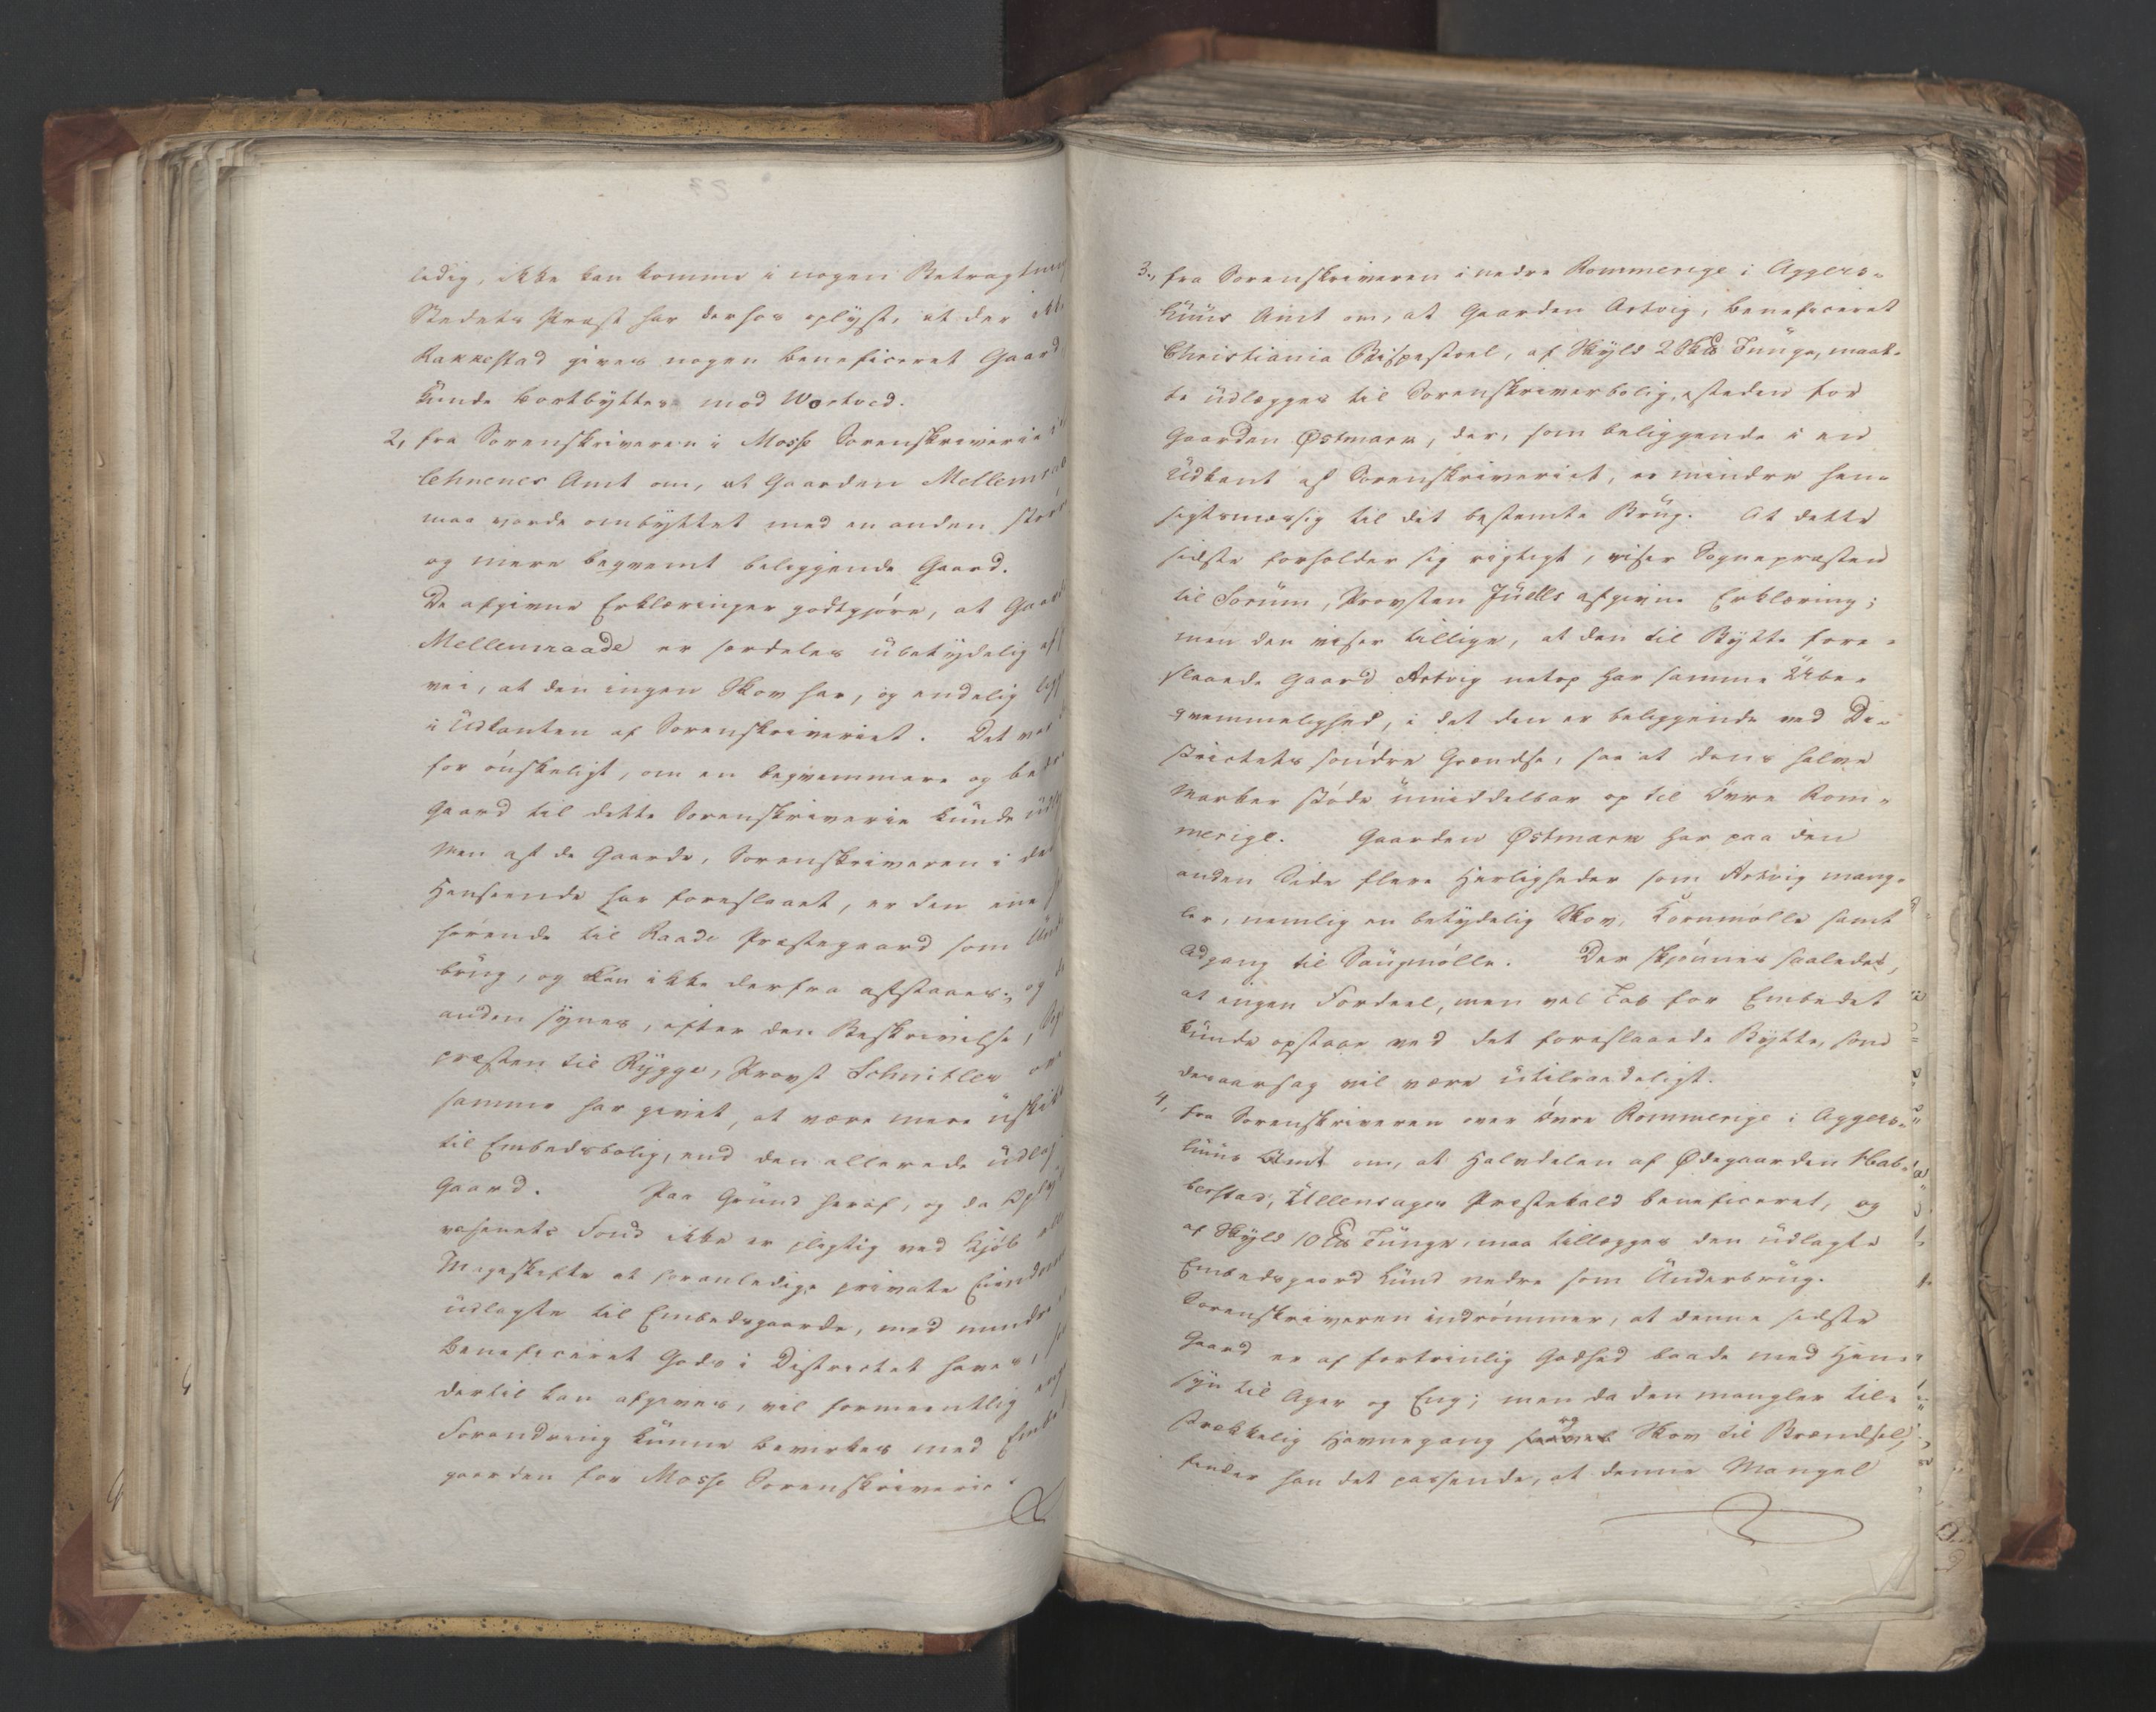 ledig, ikke kan komme i nogen Betragtning
Stedets Præst har derhos oplyst, at der ikke
Rakkestad gives nogen beneficeret Gaard
kunde bortbyttes mod Wortved.
2, fra Sorenskriveren i Mosse Sorenskriverie i
lehnenes Amt om, at Gaarden Mellemraa
maa vorde ombyttet med en anden større
og mere beqvemt beliggende Gaard.
De afgivne Erklæringer godtgjøre, at Gaard
Mellemraade er særdeles ubetydelig af
vei, at den ingen Skov har, og endelig ligg
i Udkanten af Sorenskriveriet. Det var
for ønskeligt, om en beqvemmere og bedre
Gaard til dette Sorenskriverie kunde udl
Men af de Gaarde, Sorenskriveren i det
Henseende har foreslaaet, er den ene
hørende til Raade Præstegaard som Under
brug, og kan ikke derfra afstaaes; og
anden synes, efter den Beskrivelse, Sogne
præsten til Rygge, Provst Schnitler om
samme har givet, at være mere uskik
til Embedsbolig, end den allerede udlag
Gaard. Paa Grund heraf, og da Oplys
væsenets Fond ikke er pligtig ved Kjøb eller
Mageskifte at foranledige private Eiendomme
udlagte til Embedsgaarde, med mindre
beneficeret Gods i Districtet haves,
dertil kan afgives, vil formeentlig ingen
Forandring kunne bevirkes med Embeds
gaarden for Mosse Sorenskriverie.
3., fra Sorenskriveren i nedre Rommerige i Aggers-
huus Amt om, at Gaarden Artvig, beneficeret
Christiania Bispestoel, af Skyld 2 Sk℔ Tunge, maat-
te udlægges til Sorenskriverbolig, istedenfor
Gaarden Østmark, der, som beliggende i en
Udkant af Sorenskriveriet, er mindre hen-
sigtsmæssig til det bestemte Brug. At dette
sidste forholder sig rigtigt, viser Sognepræsten
til Sørum, Provsten Juells afgivne Erklæring;
men den viser tillige, at den til Bytte fore-
slaaede Gaard Artvig netop har samme Ube-
qvemmelighed, i det den er beliggende ved Di-
strictets søndre Grændse, saa at dens halve
Marker støde umiddelbar op til Øvre Rom-
merige. Gaarden Østmark har paa den
anden Side flere Herligheder som Artvig mang-
ler, nemlig en betydelig Skov, Kornmølle samt
Adgang til Saugmølle. Der skjønnes saaledes,
at ingen Fordeel, men vel Tab for Embedet
kunde opstaae ved det foreslaaede Bytte, som
desaarsag vil være utilraadeligt.
4, fra Sorenskriveren over Øvre Rommerige i Aggers-
huus Amt om, at Halvdelen af Ødegaarden Hab-
berstad, Ullensager Præstekald beneficeret, og
af Skyld 10 ℔ Tunge, maa tillægges den udlagte
Embedsgaard Lund nedre som Underbrug.
Sorenskriveren indrømmer, at denne sidste
Gaard er af fortrinlig Godhed baade med Hen-
syn til Ager og Eng; men da den mangler til-
strækkelig Havnegang og Skov til Brændsel,
finder han det passende, at denne Mangel